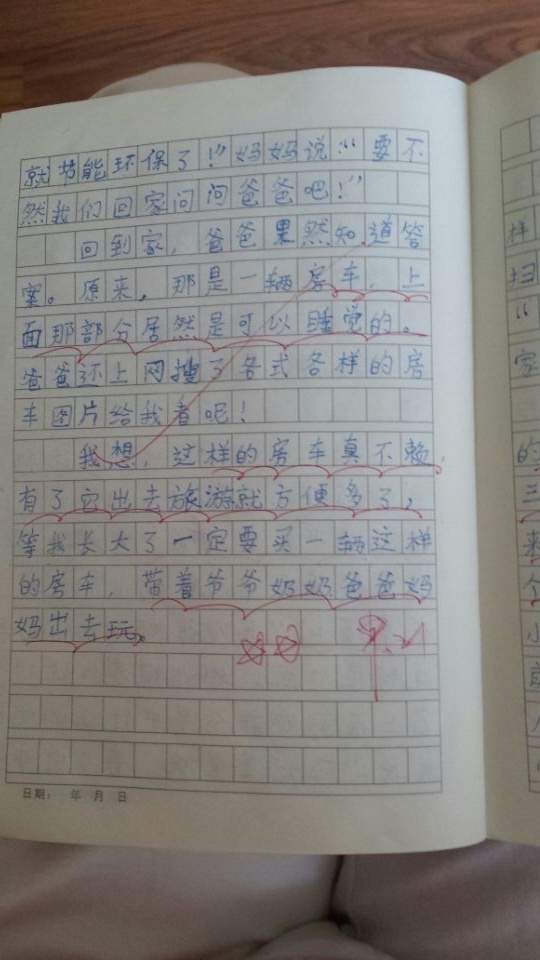 就节能环保了！”妈妈说：“要不
然我们回家问问爸爸吧！”
回到家，爸爸果然知道答
案。原来，那是一辆房车，上
面那部分居然是可以睡觉的。
爸爸还上网搜了各式各样的房
车图片给我看呢！
我想，这样的房车真不赖，
有了它出去旅游就方便多了，
等我长大了一定要买一辆这样
的房车，带着爷爷奶奶爸爸妈
妈出去玩。
日期： 年 月 日
样
扫
“
家
的
三
来
个
小